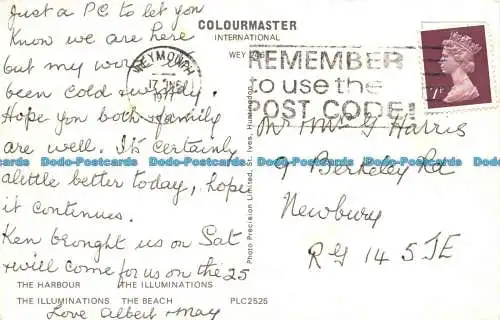 Just a PC to let you
know we are here
but my word
been cold & windy.
Hope you both & family
are well. It's certainly
alittle better today, hope
it continues.
Ken brought us on Sat
& will come for us on the 25
Love Albert & May
COLOURMASTER
INTERNATIONAL
WEY
WEYMOUTH
REMEMBER
to use the
POST CODE!
Mr & Mrs G Harris
9 Berkeley Rd
Newbury
RG14 5JE
Photo Precision Limited, St. Ives, Huntingdon
THE HARBOUR THE ILLUMINATIONS
THE ILLUMINATIONS THE BEACH PLC2525
Dodo-Postcards Dodo-Postcards Dodo-Postcards Dodo-Postcards Dodo-Postcards Dodo-Postcards